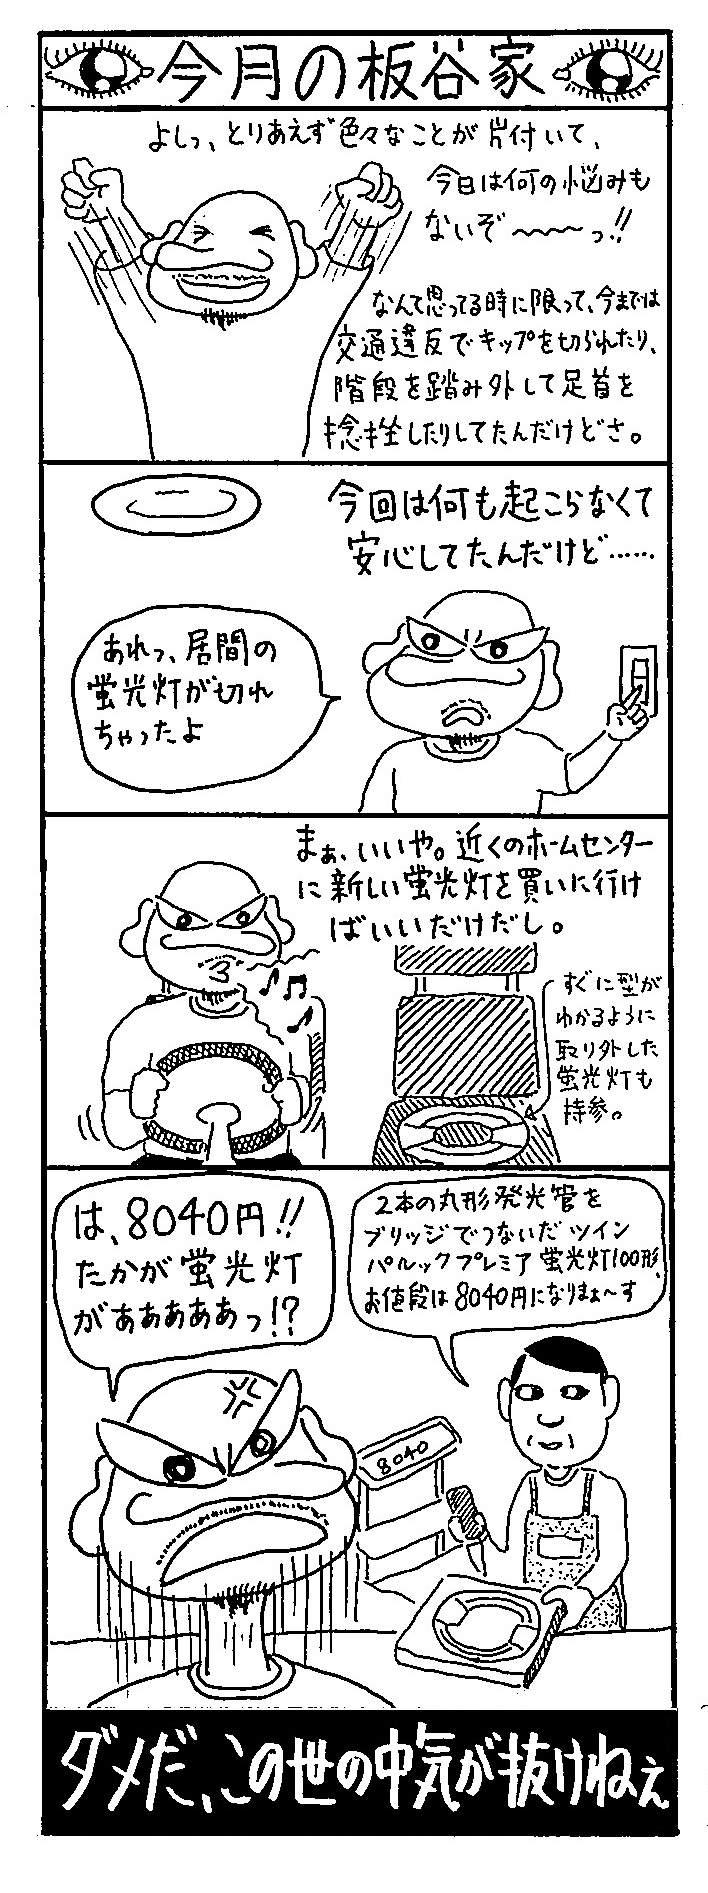 今月の板谷家
よしっ、とりあえず色々なことが片付いて、
今日は何の悩みも
ないぞ〜〜〜っ!!
なんて思ってる時に限って、今までは
交通違反でキップを切られたり、
階段を踏み外して足首を
捻挫したりしてたんだけどさ。
今回は何も起こらなくて
安心してたんだけど……
あれっ、居間の
蛍光灯が切れ
ちゃったよ
まぁ、いいや。近くのホームセンター
に新しい蛍光灯を買いに行け
ばいいだけだし。
すぐに型が
わかるように
取り外した
蛍光灯も
持参。
は、8040円!!
たかが蛍光灯
がぁああああっ!?
2本の丸形発光管を
ブリッジでつないだツイン
パルックプレミア蛍光灯100形、
お値段は8040円になりまぁ〜す
8040
ダメだ、この世の中気が抜けねぇ